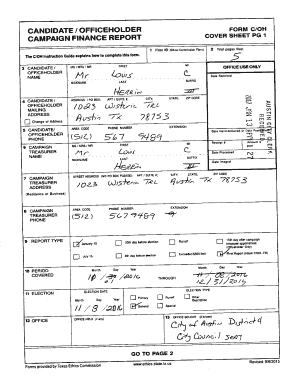 CANDIDATE / OFFICEHOLDER FORM C/OH
CAMPAIGN FINANCE REPORT COVER SHEET PG 1
The C/OH Instruction Guide explains how to complete this form. 1 Filer ID (Ethics Commission Filers) 2 Total pages filed: 5
3 CANDIDATE / OFFICEHOLDER NAME
MS / MRS / MR FIRST MI
Mr Louis C
NICKNAME LAST SUFFIX
Herrin
OFFICE USE ONLY
Date Received
AUSTIN CITY CLERK
RECEIVED
4 CANDIDATE / OFFICEHOLDER MAILING ADDRESS
Change of Address
ADDRESS / PO BOX; APT / SUITE #; CITY; STATE; ZIP CODE
1023 Wisteria TRL
Austin TX 78753
5 CANDIDATE/ OFFICEHOLDER PHONE
AREA CODE PHONE NUMBER EXTENSION
(512) 567 9489
Receipt # Amount $
6 CAMPAIGN TREASURER NAME
MS / MRS / MR FIRST MI
Mr Louis C
NICKNAME LAST SUFFIX
Herrin III
Date Processed
Date Imaged
7 CAMPAIGN TREASURER ADDRESS
(Residence or Business)
STREET ADDRESS (NO PO BOX PLEASE); APT / SUITE #; CITY; STATE; ZIP CODE
1023 Wisteria TRL Austin TX 78753
8 CAMPAIGN TREASURER PHONE
AREA CODE PHONE NUMBER EXTENSION
(512) 567 9489
9 REPORT TYPE
January 15 30th day before election Runoff 15th day after campaign treasurer appointment (Officeholder Only)
July 15 8th day before election Exceeded $500 limit Final Report (Attach C/OH - FR)
10 PERIOD COVERED
Month Day Year Month Day Year
THROUGH
12/31/2016
11 ELECTION
ELECTION DATE ELECTION TYPE
Month Day Year Primary Runoff Other Description
11/8/2016 General Special
12 OFFICE
OFFICE HELD (if any) 13 OFFICE SOUGHT (if known)
City of Austin District 4
City Council seat
GO TO PAGE 2
Forms provided by Texas Ethics Commission www.ethics.state.tx.us Revised 9/8/2015